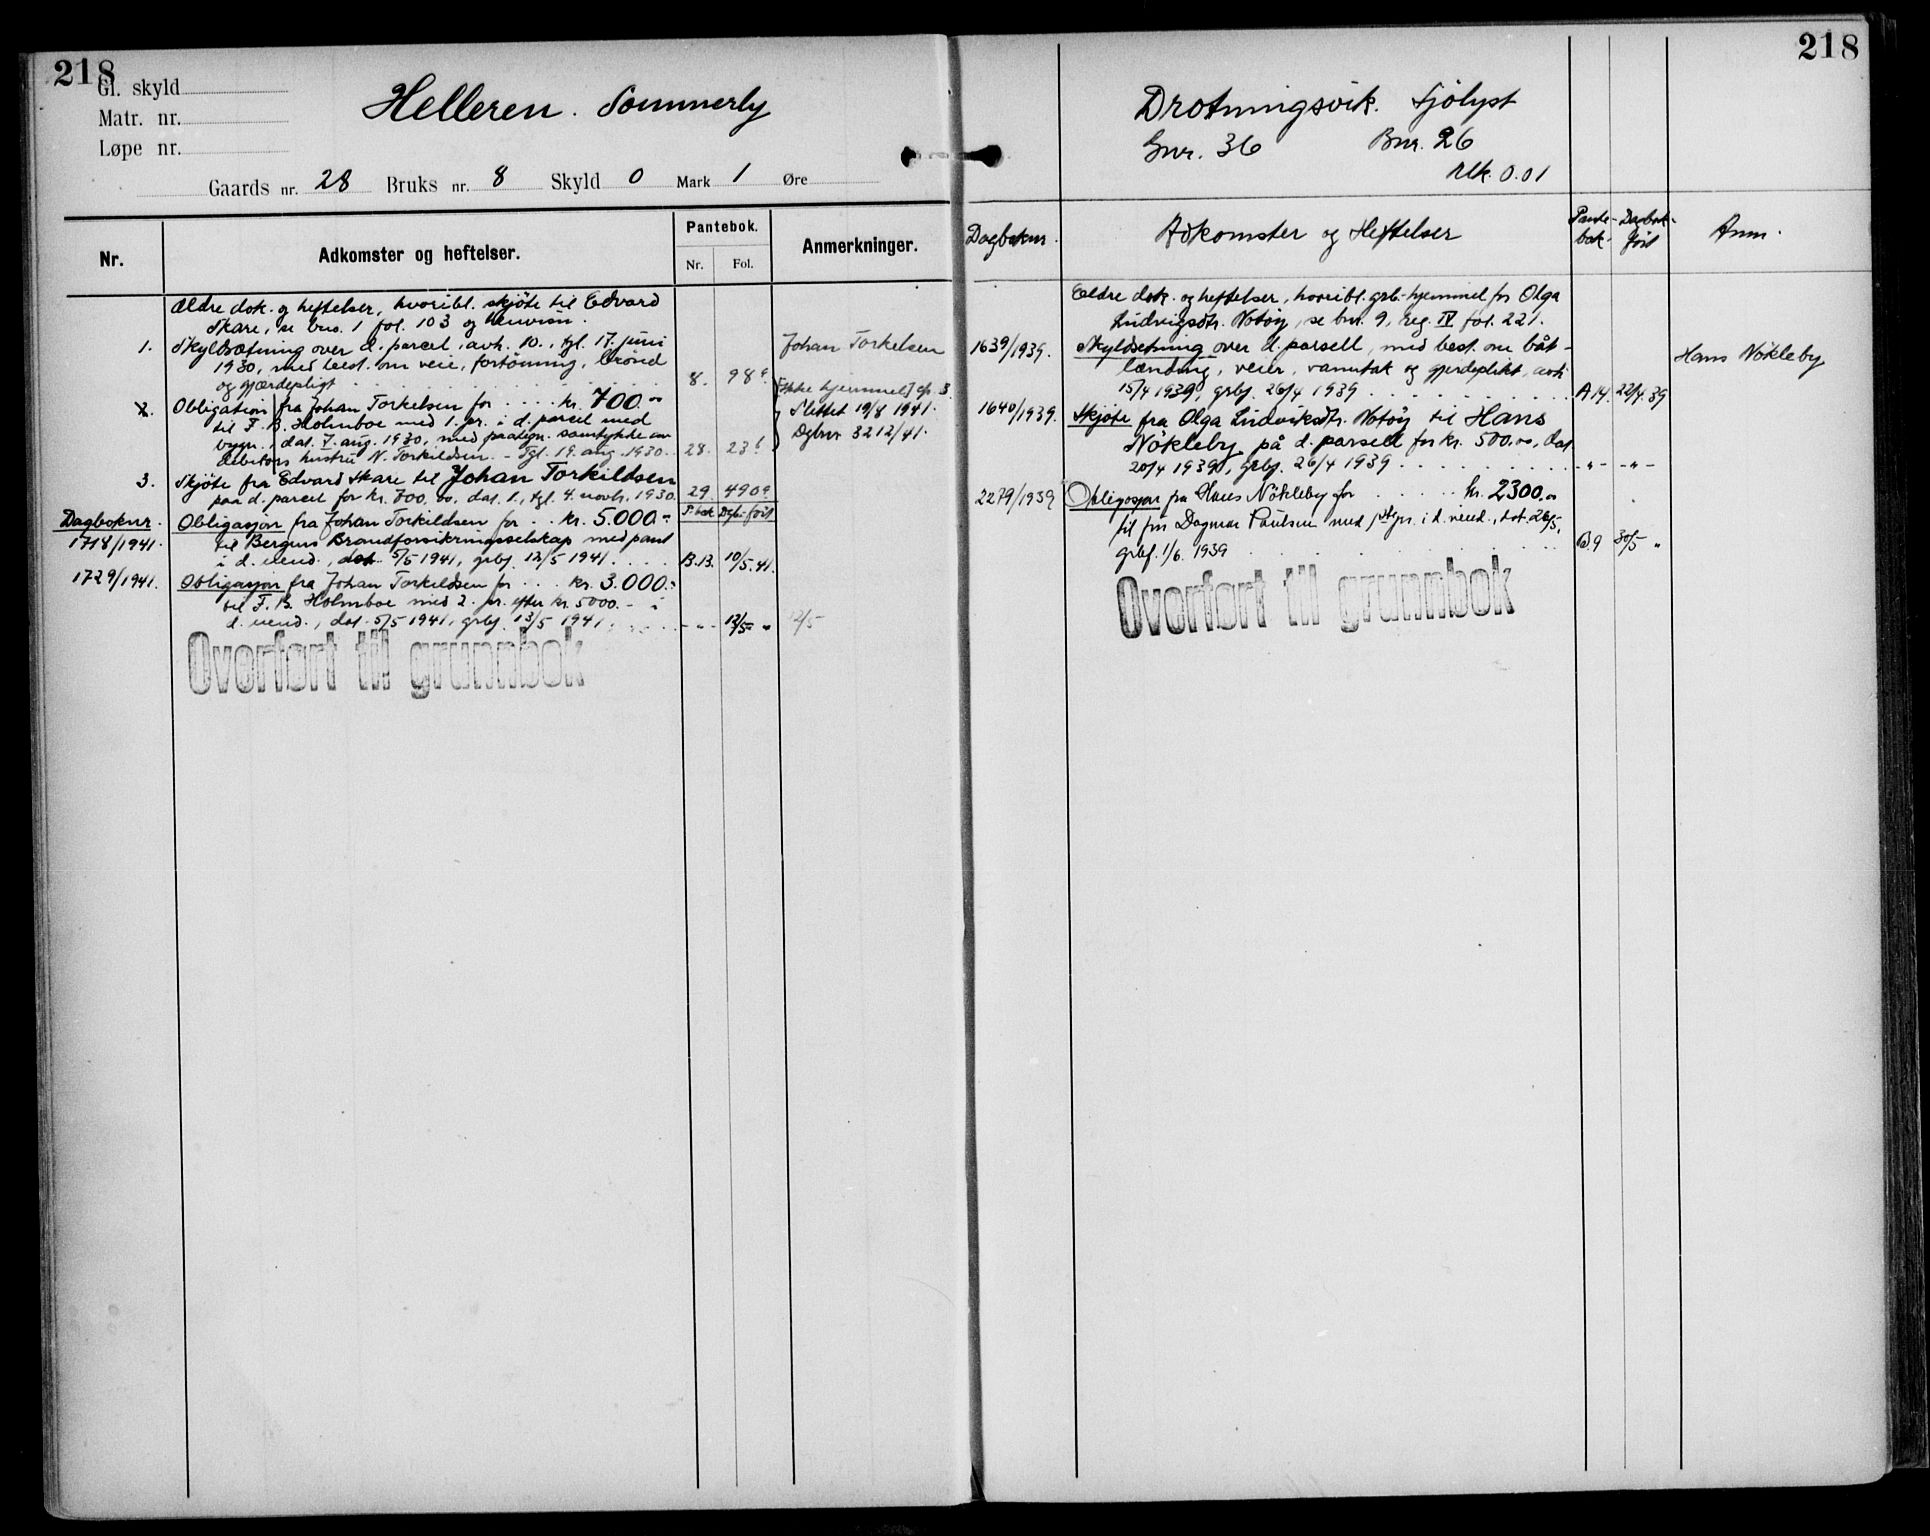 218
Gl. skyld
Matr. nr.
Løpe nr.
Helleren. Sommerly
Gaards nr. 28 Bruks nr. 8 Skyld 0 Mark 1 Øre
Nr. Adkomster og heftelser. Pantebok. Anmerkninger.
Nr. Fol.
Ældre dok. og heftelser, hvoribl. skjöte til Edvard
Skare, se bnr. 1 fol. 103 og henvisn.
1. Skyldsætning over d. parcel, avh. 10., tgl. 17. juni
1930, med best. om veie, fortöining, brönd
og gjærdepligt 8. 98a
Johan Torkelsen
[ikke hjemmel] cfr. 3
2. Obligation fra Johan Torkelsen for kr. 700.-
til F. B. Holmboe med 1. pr. i d. parcel med
bygn., dat. 7. aug. 1930, med paategn. samtykke av
debitors hustru N. Torkildsen. - Tgl. 19. aug. 1930. 28. 23b
Slettet 19/8 1941.
Dgbnr 3212/41.
3. Skjöte fra Edvard Skare til Johan Torkildsen
paa d. parcel for kr. 700,00, dat. 1., tgl. 4. novbr. 1930. 29 490a
P. bok Dgb. fört
Dagboknr.
1718/1941. Obligasjon fra Johan Torkildsen for kr. 5.000.-
til Bergens Brandforsikringsselskap med pant
i d. eiend., dat. 5/5 1941, grbf. 12/5 1941. B.13. 10/5.41.
1729/1941. Obligasjon fra Johan Torkildsen for kr. 3.000.-
til F. B. Holmboe med 2. pr. efter kr. 5000.- i
d. eiend., dat. 5/5 1941, grbf. 13/5 1941. - " - 12/5 "
12/5
Overført til grunnbok
218
Drotningsvik. Sjölyst
Gnr. 36 Bnr. 26
Mk. 0.01
Dagboknr. Adkomster og Heftelser Pante-bok. Dagbok-fört Anm.
Eldre dok. og heftelser, hvoribl. grb.-hjemmel for Olga
Ludvigsdtr. Notöy, se bnr. 9, reg. IV fol. 221.
1639/1939. Skyldsetning over d. parsell, med best. om båt-
lænding, veier, vannutak og gjerdeplikt, avh.
15/4 1939, grbf. 26/4 1939 A 14. 22/4.39
Hans Nökleby
1640/1939. Skjöte fra Olga Ludviksdtr. Notöy til Hans
Nökleby på d. parsell for kr. 500.00, dat.
20/4 1939, grbf. 26/4 1939 - " - - " -
2279/1939 Obligasjon fra Hans Nökleby for kr. 2300.-
til fru Dagmar Paulsen med 1ste pr. i d. eiend., dat. 26/5,
grbf. 1/6. 1939 B9 30/5 "
Overført til grunnbok